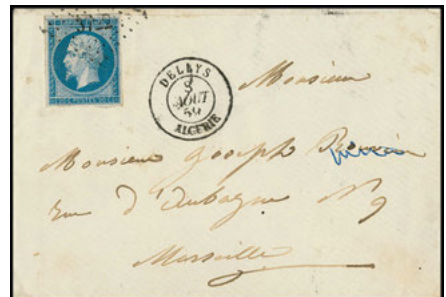 DELLYS
8
AOUT
59
ALGERIE
20 C POSTES 20 C
Monsieur
Monsieur Joseph
rue d'Aubagne N 9
Marseille